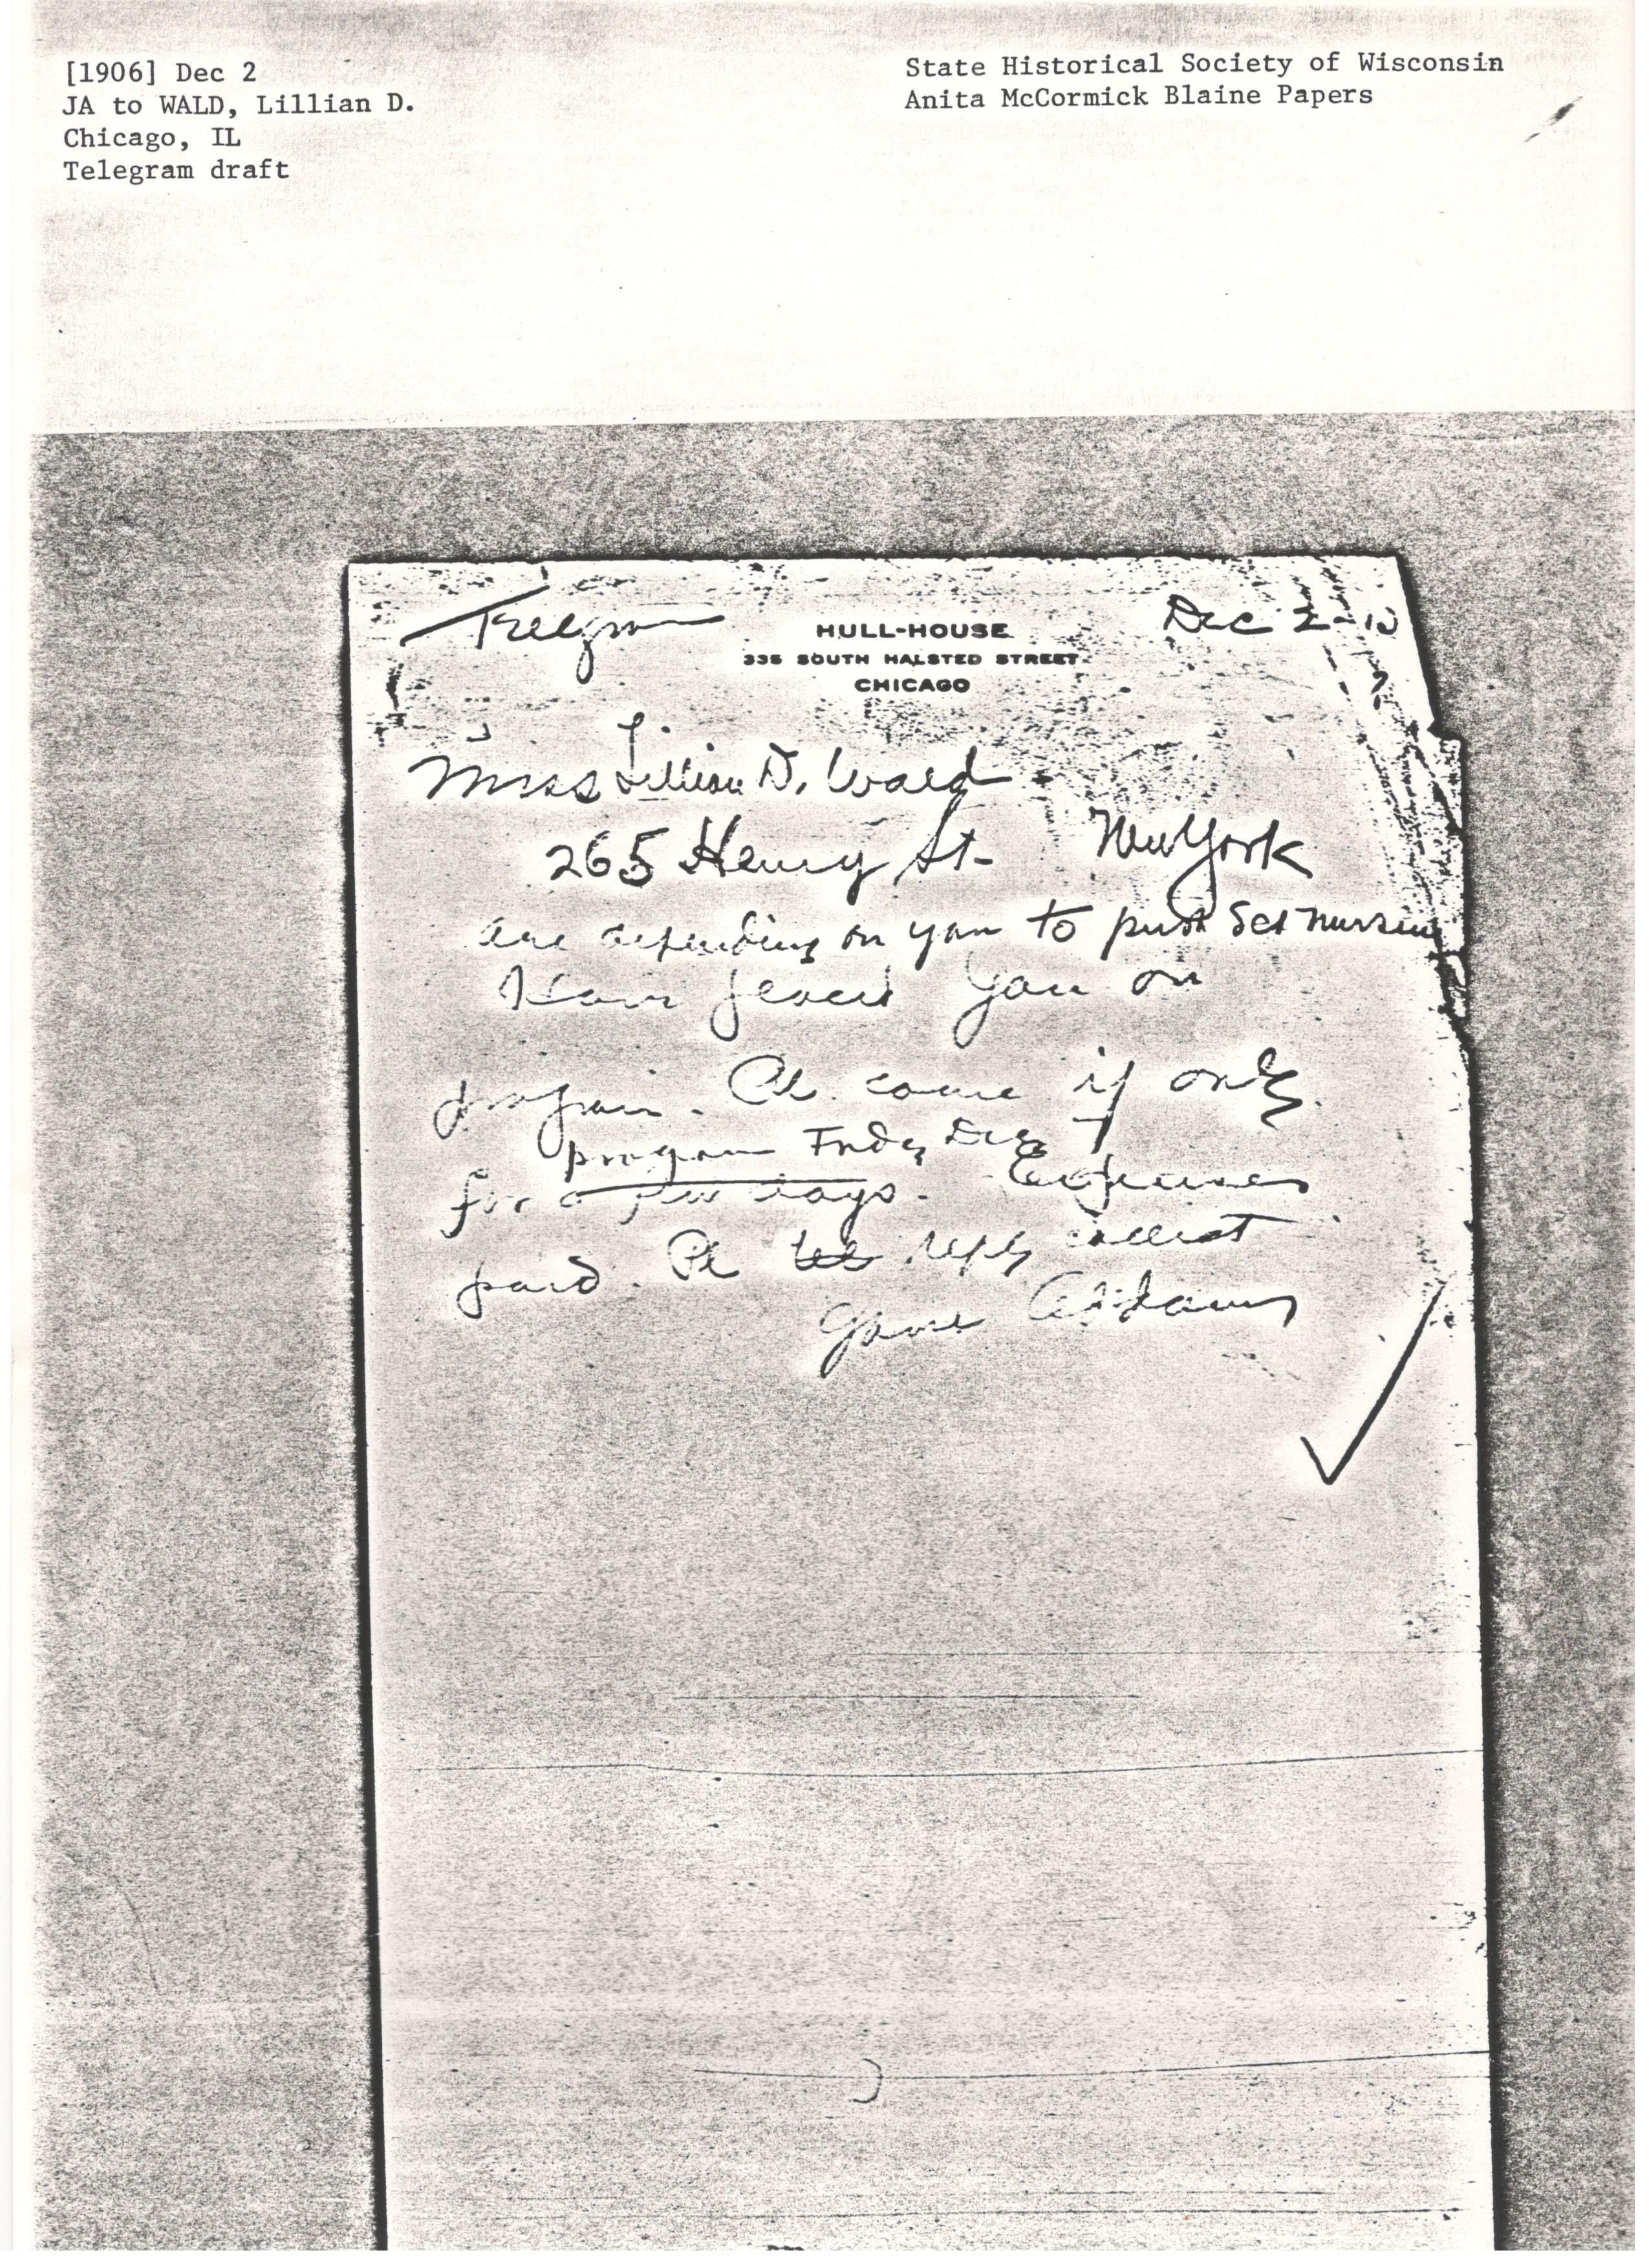 [1906] Dec 2
JA to WALD, Lillian D.
Chicago, IL
Telegram draft
State Historical Society of Wisconsin
Anita McCormick Blaine Papers
Telegram
Dec 2 -
HULL-HOUSE
335 SOUTH HALSTED STREET
CHICAGO
Miss Lillian D. Wald
265 Henry St - New York
are depending on you to push Sch nursing
Have placed you on
program. Pl. come if only
program Friday Dec 7
for a few days. Expenses
paid. Pl reply collect
Jane Addams